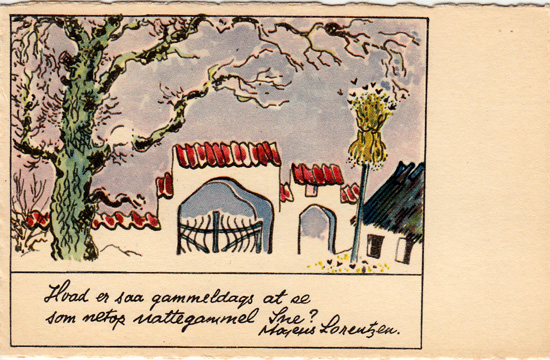 Hvad er saa gammeldags at se
som netop nattegammel Sne?
Mogens Lorentzen.